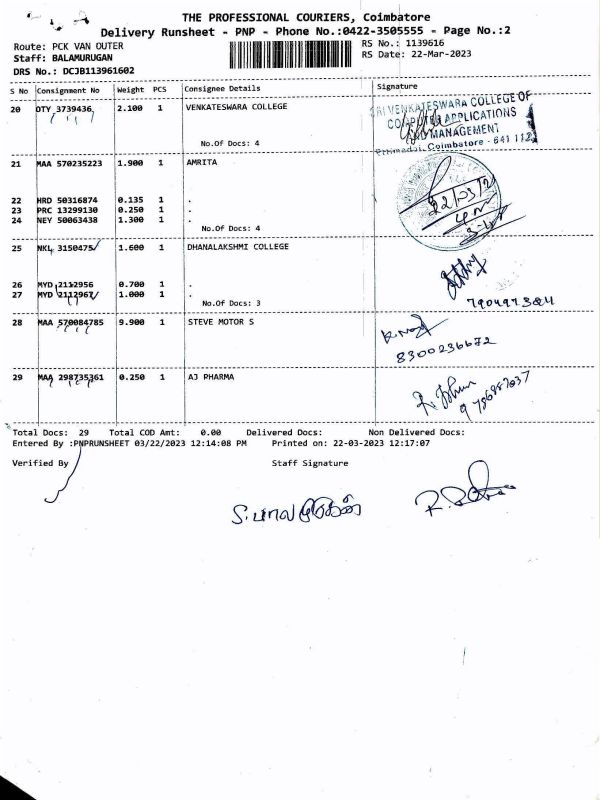 THE PROFESSIONAL COURIERS, Coimbatore
Delivery Runsheet - PNP - Phone No.:0422-3505555 - Page No.:2
Route: PCK VAN OUTER RS No.: 1139616
Staff: BALAMURUGAN RS Date: 22-Mar-2023
DRS No.: DCJB113961602
S No Consignment No Weight PCS Consignee Details Signature
20 DTY 3739436 2.100 1 VENKATESWARA COLLEGE
SRI VENKATESWARA COLLEGE OF
COMPUTER APPLICATIONS
AND MANAGEMENT
Ettimadai, Coimbatore - 641 112
No.Of Docs: 4
21 MAA 570235223 1.900 1 AMRITA
22/03/2
22 HRD 50316874 0.135 1 .
23 PRC 13299130 0.250 1 .
24 NEY 50063438 1.300 1 .
No.Of Docs: 4
25 NKL 3150475 1.600 1 DHANALAKSHMI COLLEGE
26 MYD 2112956 0.700 1 .
27 MYD 2112967 1.000 1 .
790497384
No.Of Docs: 3
28 MAA 570084785 9.900 1 STEVE MOTOR S
8300236672
29 MAA 298735361 0.250 1 AJ PHARMA
Total Docs: 29 Total COD Amt: 0.00 Delivered Docs: Non Delivered Docs:
Entered By :PNPRUNSHEET 03/22/2023 12:14:08 PM Printed on: 22-03-2023 12:17:07
Verified By Staff Signature
S. பாலமுருகன்